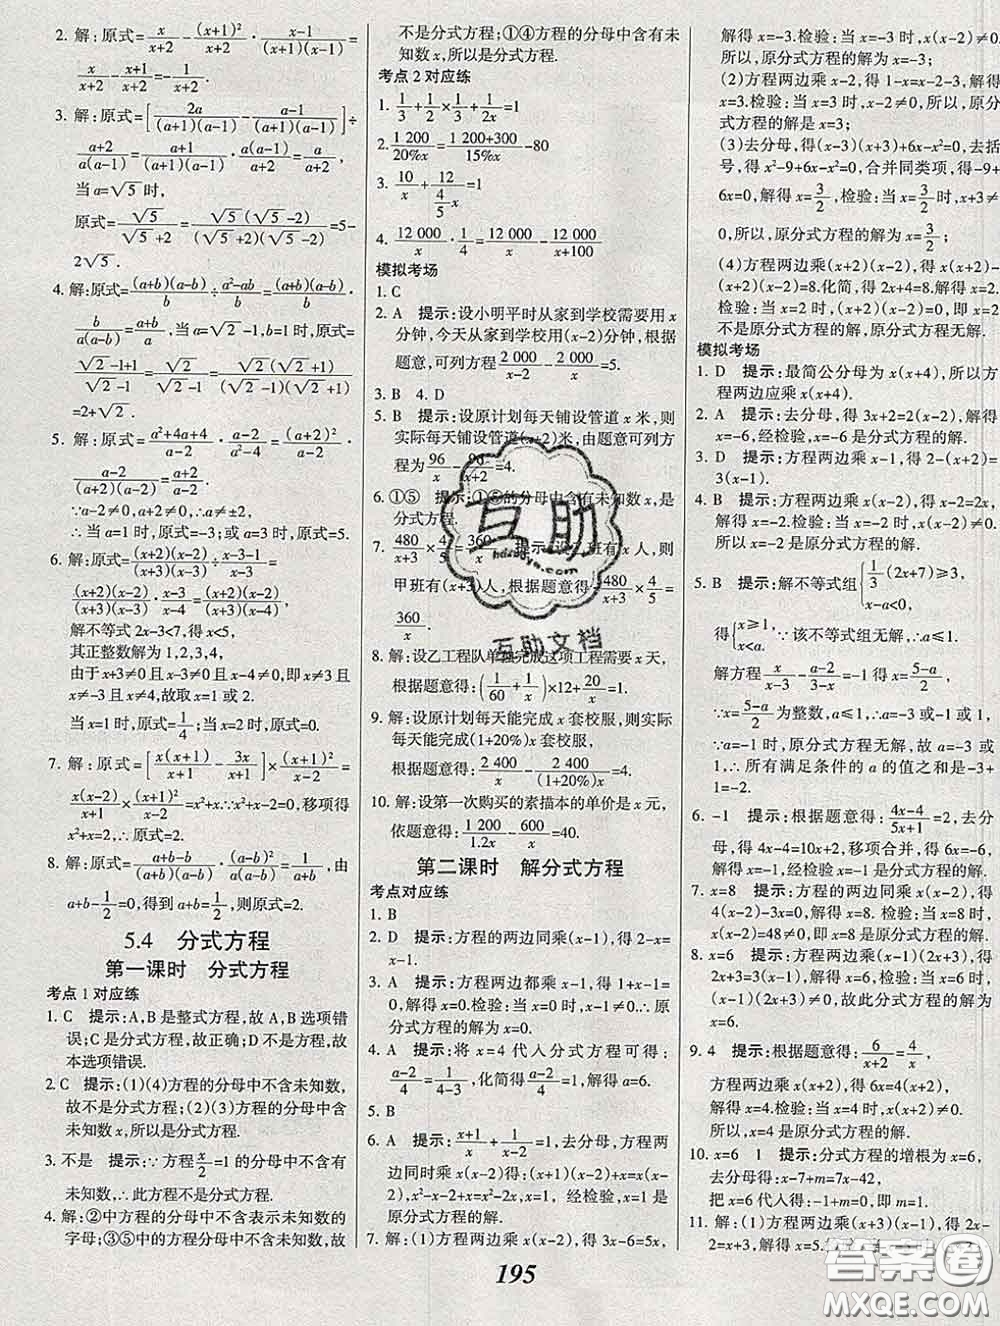 2. 解:原式=x/(x+2)-(x+1)²/(x+2)·(x-1)/((x+1)(x-1))=
x/(x+2)-(x+1)/(x+2)=-1/(x+2).
3. 解:原式=[2a/((a+1)(a-1))-(a-1)/((a+1)(a-1))]÷
(a+2)/(a(a-1))=(a+1)/((a+1)(a-1))·a(a-1)/(a+2)=a/(a+2).
当a=√5时,
原式=√5/(√5+2)=√5(√5-2)/((√5+2)(√5-2))=5-
2√5.
4. 解:原式=(a+b)(a-b)/b÷(a²-ab)/b=(a+b)(a-b)/b·
b/(a(a-b))=(a+b)/a,当a=√2-1,b=1时,原式=
(√2-1+1)/(√2-1)=√2/(√2-1)=√2(√2+1)/((√2-1)(√2+1))
=2+√2.
5. 解:原式=(a²+4a+4)/(a-2)·(a-2)/(a²-4)=(a+2)²/(a-2)·
(a-2)/((a+2)(a-2))=(a+2)/(a-2).
∵a-2≠0,a+2≠0,∴a≠±2,
∴当a=1时,原式=-3;或当a=3时,原式=5.
6. 解:原式=(x+2)(x-2)/(x(x-2))÷(x-3-1)/(x-3)=
(x+2)(x-2)/(x-3)²·(x-3)/((x+2)(x-2))=1/(x-3).
解不等式2x-3<7,得x<5,
其正整数解为1,2,3,4,
由于x+3≠0且x-3≠0且x-2≠0且x+2≠0,∴x≠-3且x≠3且x≠2且
x≠-3且x≠4,故取x=1或2.
当x=1时,原式=1/4;当x=2时,原式=1/5.
7. 解:原式=[x(x+1)/(x+1)-3x/(x+1)]×(x+1)²/(x-2)
=x(x-2)/(x+1)×(x+1)²/(x-2)=x²+x.∵x²+x-2=0,移项得
x²+x=2,∴原式=2.
8. 解:原式=(a+b-b)/(a(a-b))·(a-b)²/(a-b)=1/(a+b),由
a+b-1/2=0,得到a+b=1/2,则原式=2.
5.4 分式方程
第一课时 分式方程
考点1对应练
1. C 提示:A,B是整式方程,故A,B选项错
误;C是分式方程,故正确;D不是方程,故
本选项错误.
2. C 提示:(1)(4)方程的分母中不含未知数,
故不是分式方程;(2)(3)方程的分母中含未
知数,所以是分式方程.
3. 不是 提示:∵方程x/2=1的分母中不含有
未知数,∴此方程不是分式方程.
4. 解:②中方程的分母中不含表示未知数的
字母;③⑤中的方程分母中不含有未知数,故
不是分式方程;①④方程的分母中含有未
知数x,所以是分式方程.
考点2对应练
1. (1/3+1/2)×1/3+1/2x=1
2. 1 200/20%x=(1 200+300)/15%x-80
3. 10/x+12/(4/5 x)=1
4. 12 000/x·1/4=12 000/x-12 000/(x+100)
模拟考场
1. C
2. A 提示:设小明平时从家到学校需要用x
分钟,今天从家到学校用(x-2)分钟,根据
题意,可列方程2 000/(x-2)-2 000/x=5.
3. B 4. D
5. B 提示:设原计划每天铺设管道x米,则
实际每天铺设管道(x+2)米,由题意可列方
程为96/x-96/(x+2)=4.
6. ①⑤ 提示:①⑤的分母中含有未知数x,是
分式方程.
7. 480/(x+3)×4/5=360/x 提示:设乙班有x人,则
甲班有(x+3)人,根据题意得:480/(x+3)×4/5=
360/x.
8. 解:设乙工程队单独完成这项工程需要x天,
根据题意得:(1/60+1/x)×12+20/x=1.
9. 解:设原计划每天能完成x套校服,则实际
每天能完成(1+20%)x套校服,
根据题意得:2 400/x-2 400/((1+20%)x)=4.
10. 解:设第一次购买的素描本的单价是x元,
依题意得:1 200/1.2x-600/x=40.
第二课时 解分式方程
考点对应练
1. B
2. D 提示:方程的两边同乘(x-1),得2-x=
3. A 提示:方程两边都乘x-1,得1+x-1=
0,解得x=0.检验:当x=0时,x-1≠0.∴原
分式方程的解为x=0.
4. A 提示:将x=4代入分式方程可得:
(a-2)/4=1/(4-3),化简得(a-2)/4=1,解得a=6.
5. B
6. A 提示:(x+1)/x+1/(x-2)=1,去分母,方程
两边同时乘x(x-2)得:(x-2)(x+1)+x=x(x-2),
x²-x-2+x=x²-2x,x=1,经检验,x=1是
原分式方程的解.
7. 解:(1)方程两边乘x(x-2),得3x-6=5x,
解得x=-3.检验:当x=-3时,x(x-2)≠0.
所以,原分式方程的解为x=-3;
(2)方程两边乘x-2,得1-x=x-2-3,解得
x=3.检验:当x=3时,x-2≠0,所以,原分
式方程的解是x=3;
(3)去分母得:(x-3)(x+3)+6x-x²=0,去括
号,得x²-9+6x-x²=0,合并同类项,得-9+
6x=0,解得x=3/2,检验:当x=3/2时,x+3≠
0,所以,原分式方程的解为x=3/2;
(4)方程两边乘(x+2)(x-2),得x(x+2)-
(x+2)(x-2)=8.化简,得2x+4=8.解得x=2.
检验:当x=2时,(x+2)(x-2)=0,即x=2
不是原分式方程的解,原分式方程无解.
模拟考场
1. D 提示:最简公分母为x(x+4),所以方
程两边应乘x(x+4).
2. A 提示:去分母,得3x+2=2(x-2),解得
x=-6,经检验,x=-6是分式方程的解.
3. D 提示:方程两边乘x-1,得2-(x+2)=
3(x-1).
4. B 提示:方程两边乘x(x-2),得x-2=2x,
所以x=-2是原分式方程的解.
5. B 提示:解不等式组{1/3(2x+7)≥3, x-a<0,
得{x≥1, x<a. ∵该不等式组无解,∴a≤1.
解方程x/(x-3)-(a-2)/(3-x)=-1,得x=(5-a)/2.
∵x=(5-a)/2为整数,a≤1,∴a=-3或-1或1,
∵a=-1时,原分式方程无解,故a=-3或
1,∴所有满足条件的a的值之和是-3+
1=-2.
6. -1 提示:根据题意得:(4x-4)/(5x+1)=2,去分
母,得4x-4=10x+2,移项合并,得6x=-6,
解得x=-1,经检验x=-1是分式方程的解.
7. x=8 提示:方程的两边同乘x(x-2),得
4(x-2)-3x=0,解得x=8.检验:当x=8时,
x(x-2)=48≠0,即x=8是原分式方程的解.
8. x=6 提示:方程两边乘(x-1)(2x+3),得
2x+3=3(x-1),解得x=6,检验:当x=6时,
(x-1)(2x+3)≠0,故此分式方程的解为
x=6.
9. 4 提示:根据题意得:6/(x+2)=4/x,
方程两边乘x(x+2),得6x=4(x+2),
解得x=4.检验:当x=4时,x(x+2)≠0.
所以,x=4是原分式方程的解.
10. x=6 1 提示:分式方程的增根为x=6,
去分母得:5-x+m=7x-42,
把x=6代入得:-1+m=0,即m=1.
11. 解:(1)方程两边乘(x+3)(x-1),得2x-
2=x+3,解得x=5.
195
互助
hdzuoye.com
互助文档
答案圈
MXQE.COM